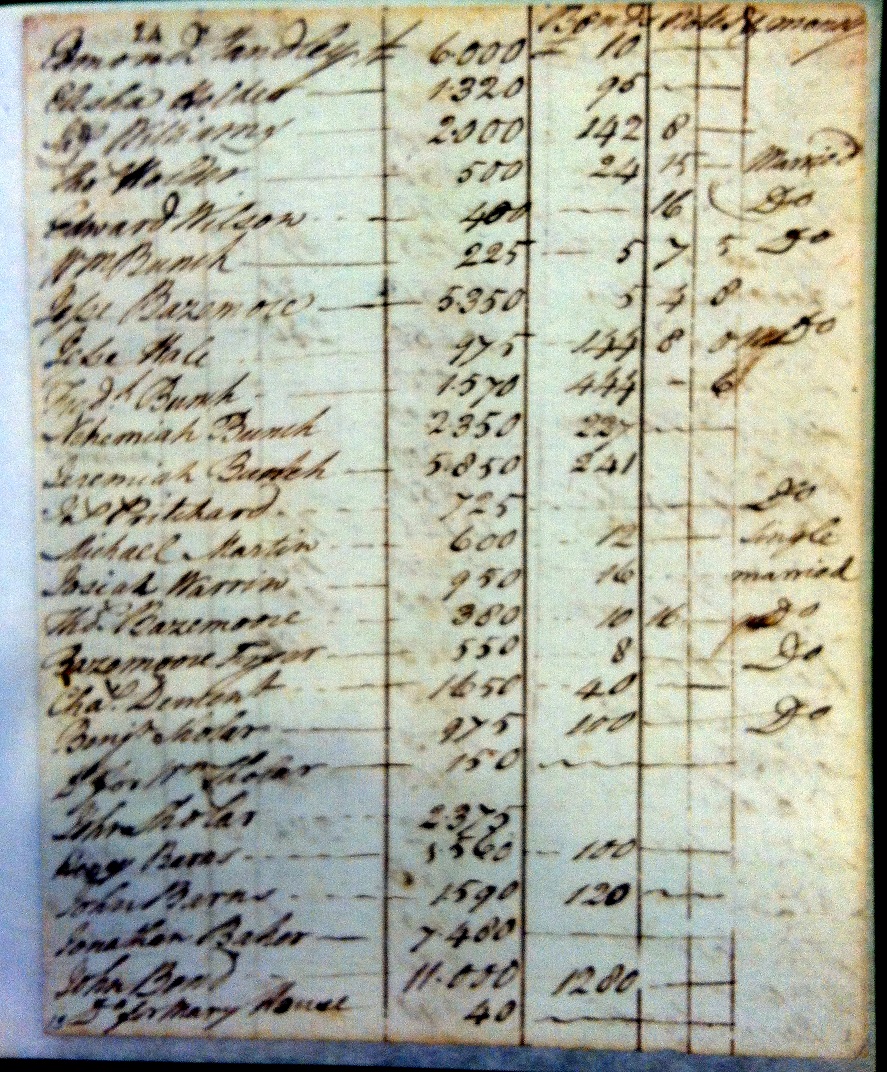 24 Bonds Notes & money
Edmond Handley 6000 10
Elisha Holder 1320 95
Williams 2000 142 8
Tho Walker 500 24 15 Married
Edward Wilson 400 16 Do
Wm Bunch 225 5 7 5 Do
Jesse Bazemore 5350 5 4 8
Jesse Hale 975 144 8 0 Do
Fredk Bunch 1570 444 6
Nehemiah Bunch 2350 227
Jeremiah Bunch 5850 241
Pritchard 725 Do
Michael Martin 600 12 Single
Josiah Warrin 950 16 married
Thos Bazemore 380 10 16 Do
Bazemoore 550 8 Do
Chas Dement 1650 40
Benja Skolar 975 100 Do
Do for Wm Skolar 150
John Skolar 2375
Barns 1560 100
John Barns 1590 120
Jonathan Baker 7480
John Bond 11.000 1280
Do for Mary House 40